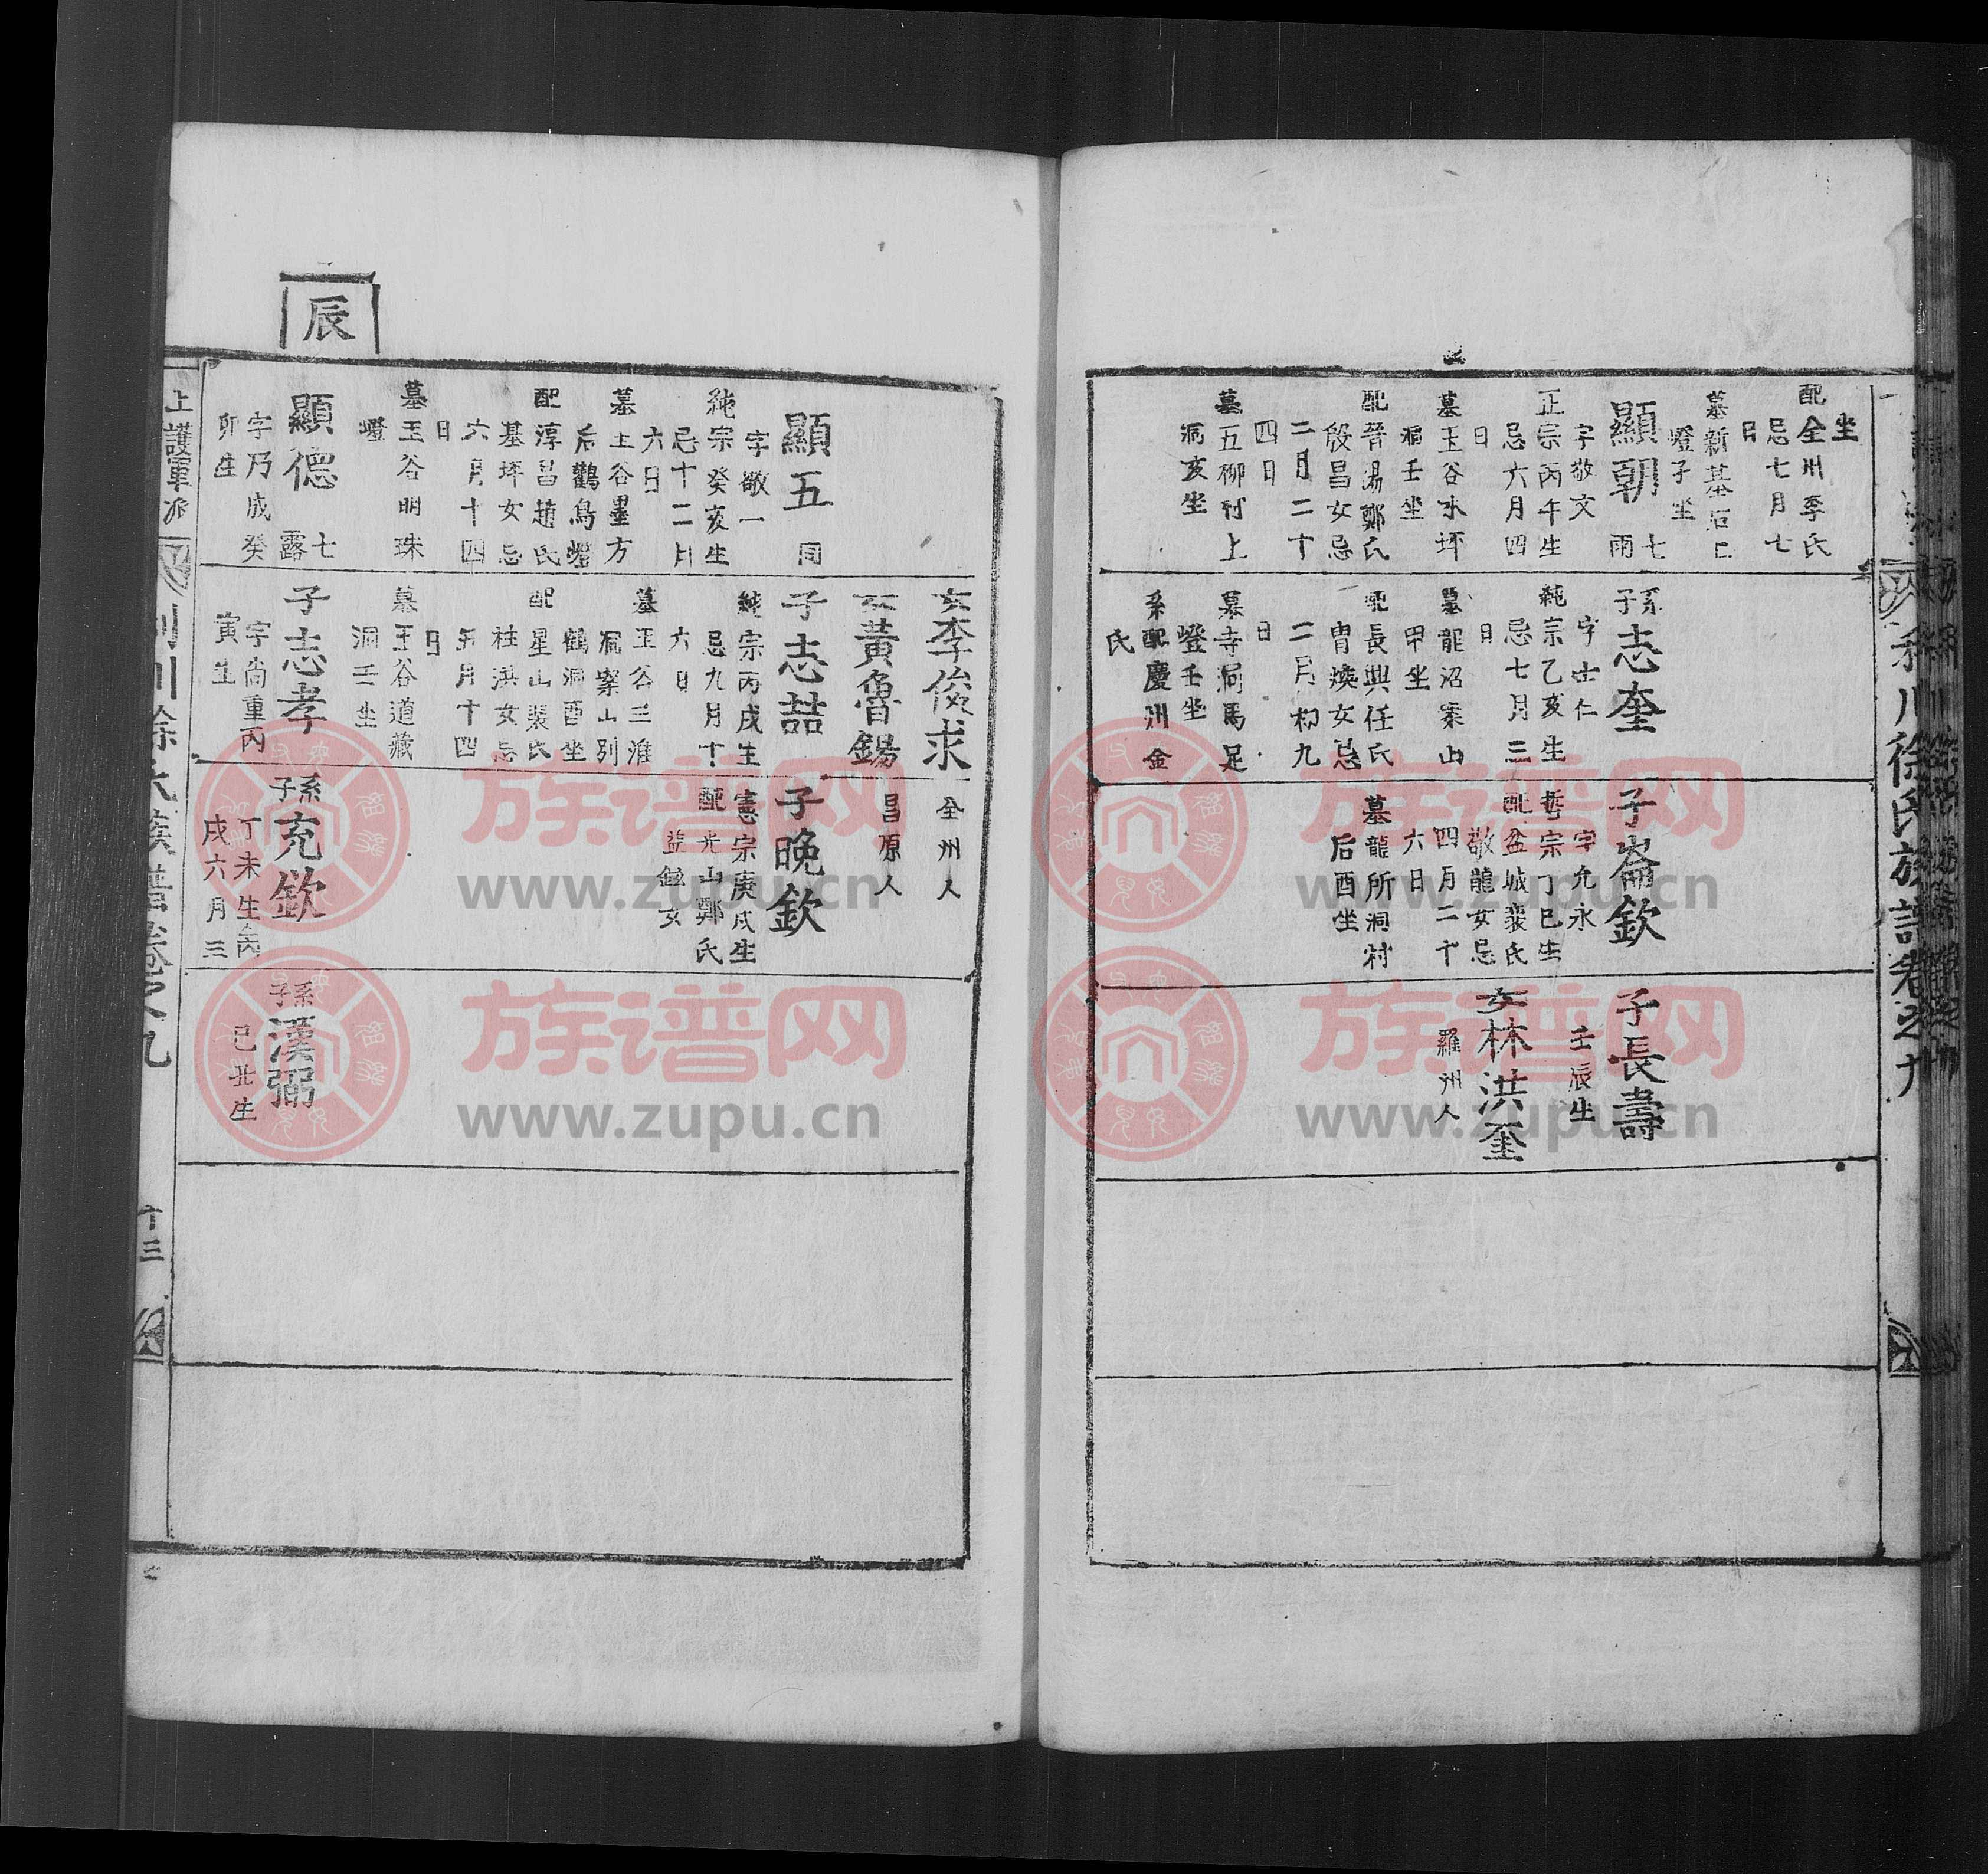 坐
配全州李氏
忌七月七
日
墓新基后
嶝子坐
顯朝 七
雨
字敬文
正宗丙午生
忌六月四
日
墓玉谷水坪
洞壬坐
配晉陽鄭氏
殷昌女忌
二月二十
四日
墓五柳村上
洞亥坐
系子志奎
字士仁
純宗乙亥生
忌七月三
日
墓龍沼案山
甲坐
配長興任氏
胄煥女忌
二月初九
日
墓寺洞馬足
嶝壬坐
系配慶州金
氏
子崙欽
字允永
哲宗丁巳生
配盆城裴氏
敬龍女忌
四月二十
六日
墓龍所洞村
后酉坐
子長壽
壬辰生
女林洪奎
羅州人
利川徐氏族譜卷之九
顯五 同
字敬一
純宗癸亥生
忌十二月
六日
墓玉谷墨方
后鶴鳥嶝
配淳昌趙氏
基坪女忌
六月十四
日
墓玉谷明珠
嶝
辰
顯德 七
露
字乃成癸
卯生
女李俊求
全州人
女黃魯錫
昌原人
子志喆
純宗丙戌生
忌九月十
六日
墓玉谷三淮
洞案山別
鶴洞酉坐
配星山裴氏
柱洪女忌
五月十四
日
墓玉谷道藏
洞壬坐
子志孝
字尚重丙
寅生
子晚欽
憲宗庚戌生
配光山鄭氏
益鉉女
系子充欽
丁未生丙
戌六月三
系子漢弼
己丑生
上護軍派
利川徐氏族譜卷之九
十三
族谱网
www.zupu.cn
族谱网
www.zupu.cn
族谱网
www.zupu.cn
族谱网
www.zupu.cn